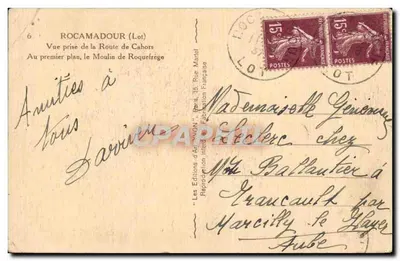 6
ROCAMADOUR (Lot)
Vue prise de la Route de Cahors
Au premier plan, le Moulin de Roquefrège
Amitiés à
Vous
"Les Editions d'Art "YVON", Paris, 15, Rue Martel
Reproduction Fabrication Française
15c 15c
POSTES POSTES
ROC
LOT LOT
DELCAMPE
Mademoiselle Geneviève
Leclerc chez
Mme Ballantier à
Trancault par
Marcilly le Hayer
Aube